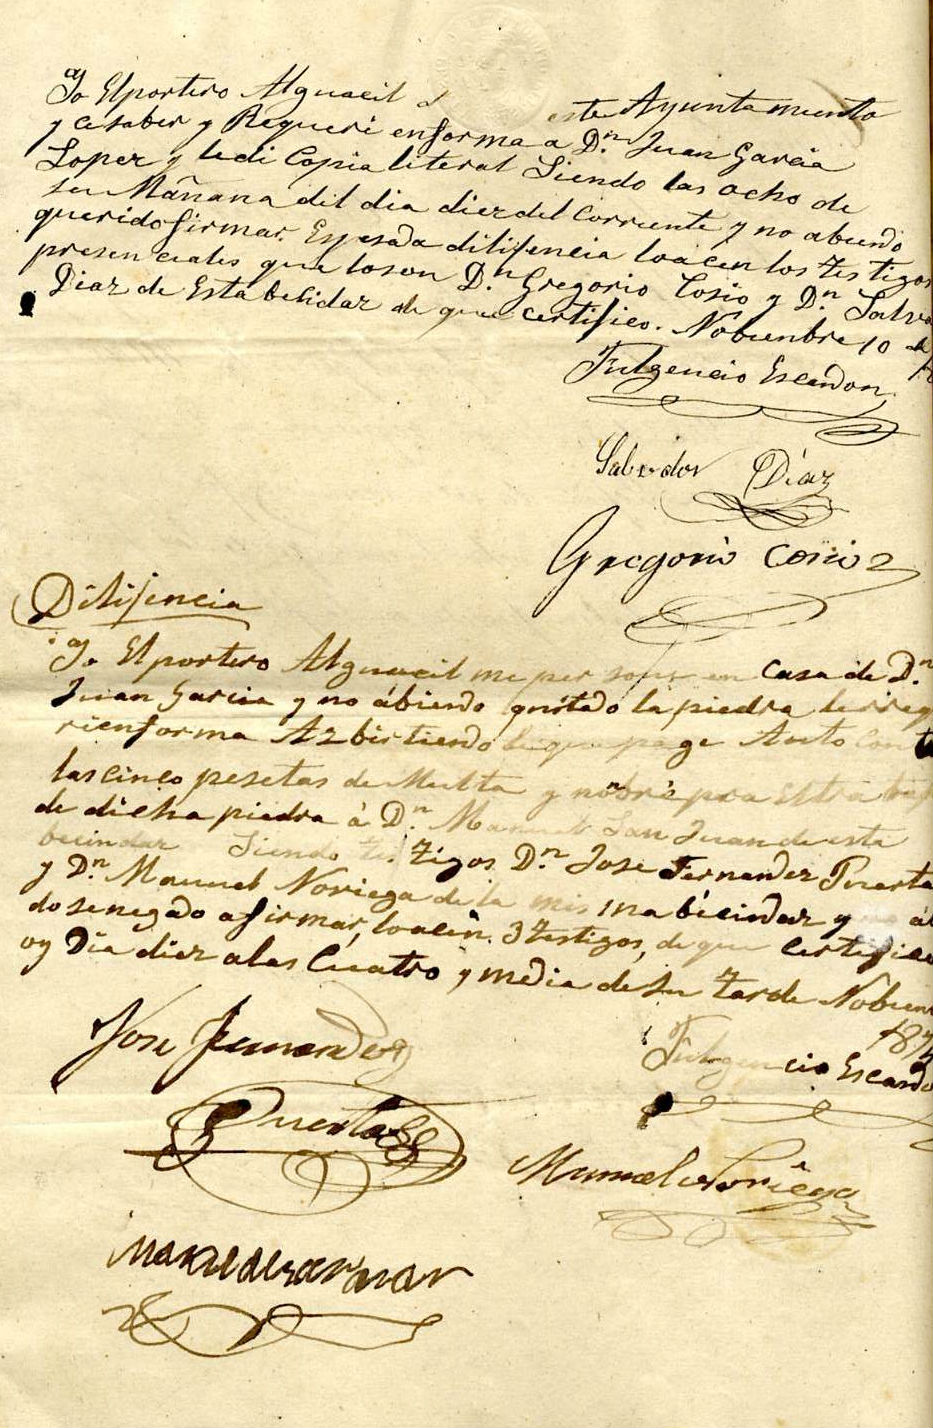 Yo Elportero Alguacil d este Ayuntamiento
y ce saber y Requeri enforma a Dn Juan Garcia
Lopez y ledi Copia literal Siendo las ocho de
su Mañana dil dia diez del Corriente y no abiendo
querido firmar. Espesada dilijencia loacen los testigos
presenciales que loson Dn. Gregorio Cosio y Dn Salva
Diaz de Esta becindaz de que certifico. Nobienbre 10 de
Fulgencio Escandon
Salvador Díaz
Gregorio Cosio
Dilijencia
Yo Elportero Alguacil me persone en Casa de Dn
Juan Garcia y no ábiendo quitado la piedra lerreq
rienforma Azbirtiendo le que page Auto con
las cinco pesetas de Multa y nonbré pra Estra
de dicha piedra á Dn Manuel San Juan de esta
becindaz Siendo testigos Dn Jose Fernandez Puerta
y Dn Manuel Noriega de la misma bécindaz y no áb
dose negado afirmar, loacen. 3 testigos, de que Certifico
oy Dia diez alas Cuatro y media de su tarde Nobien
187
Jose Fernandez
Fulgencio Escando
Puertas
Manuel Noriega